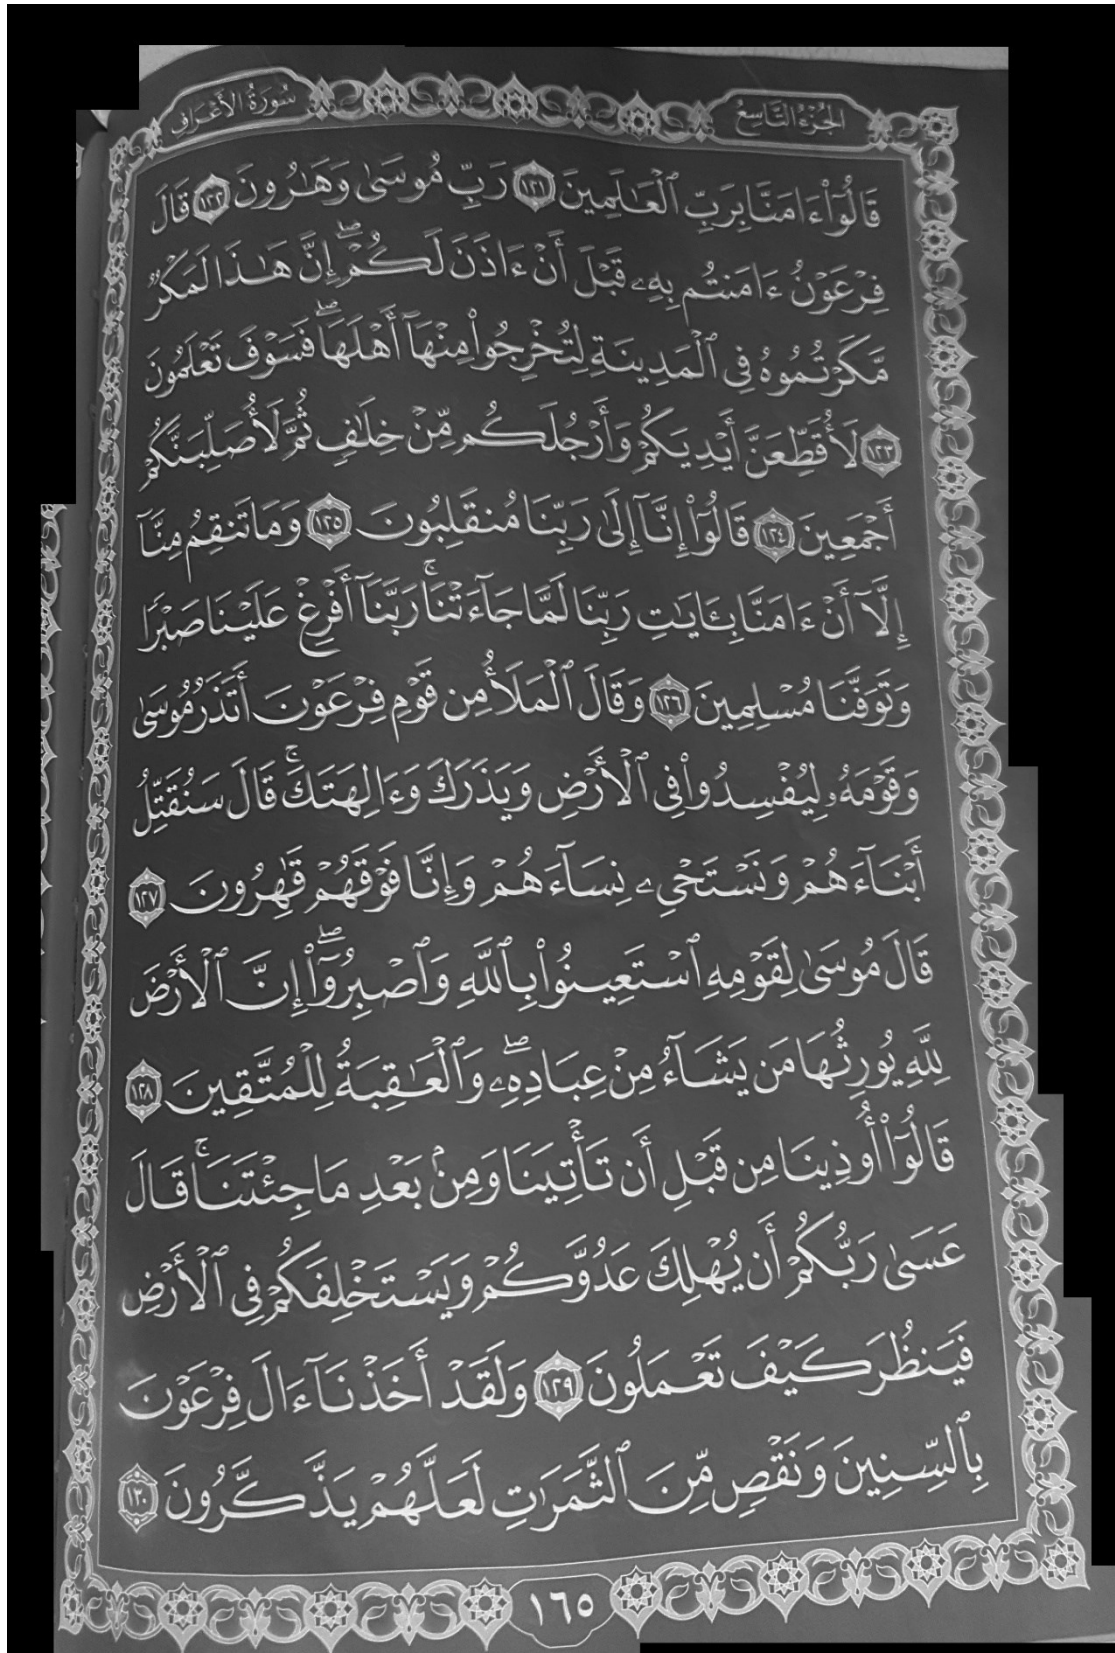 الجُزْءُ التَّاسِعُ
سُورَةُ الأَعْرَافِ
قَالُوٓاْ ءَامَنَّا بِرَبِّ ٱلْعَٰلَمِينَ ١٢١ رَبِّ مُوسَىٰ وَهَٰرُونَ ١٢٢ قَالَ
فِرْعَوْنُ ءَامَنتُم بِهِۦ قَبْلَ أَنْ ءَاذَنَ لَكُمْۖ إِنَّ هَٰذَا لَمَكْرٌ
مَّكَرْتُمُوهُ فِي ٱلْمَدِينَةِ لِتُخْرِجُواْ مِنْهَآ أَهْلَهَاۖ فَسَوْفَ تَعْلَمُونَ
١٢٣ لَأُقَطِّعَنَّ أَيْدِيَكُمْ وَأَرْجُلَكُم مِّنْ خِلَٰفٖ ثُمَّ لَأُصَلِّبَنَّكُمْ
أَجْمَعِينَ ١٢٤ قَالُوٓاْ إِنَّآ إِلَىٰ رَبِّنَا مُنقَلِبُونَ ١٢٥ وَمَا تَنقِمُ مِنَّآ
إِلَّآ أَنْ ءَامَنَّا بِـَٔايَٰتِ رَبِّنَا لَمَّا جَآءَتْنَاۚ رَبَّنَآ أَفْرِغْ عَلَيْنَا صَبْرٗا
وَتَوَفَّنَا مُسْلِمِينَ ١٢٦ وَقَالَ ٱلْمَلَأُ مِن قَوْمِ فِرْعَوْنَ أَتَذَرُ مُوسَىٰ
وَقَوْمَهُۥ لِيُفْسِدُواْ فِي ٱلْأَرْضِ وَيَذَرَكَ وَءَالِهَتَكَۚ قَالَ سَنُقَتِّلُ
أَبْنَآءَهُمْ وَنَسْتَحْيِۦ نِسَآءَهُمْ وَإِنَّا فَوْقَهُمْ قَٰهِرُونَ ١٢٧
قَالَ مُوسَىٰ لِقَوْمِهِ ٱسْتَعِينُواْ بِٱللَّهِ وَٱصْبِرُوٓاْۖ إِنَّ ٱلْأَرْضَ
لِلَّهِ يُورِثُهَا مَن يَشَآءُ مِنْ عِبَادِهِۦۖ وَٱلْعَٰقِبَةُ لِلْمُتَّقِينَ ١٢٨
قَالُوٓاْ أُوذِينَا مِن قَبْلِ أَن تَأْتِيَنَا وَمِنۢ بَعْدِ مَا جِئْتَنَاۚ قَالَ
عَسَىٰ رَبُّكُمْ أَن يُهْلِكَ عَدُوَّكُمْ وَيَسْتَخْلِفَكُمْ فِي ٱلْأَرْضِ
فَيَنظُرَ كَيْفَ تَعْمَلُونَ ١٢٩ وَلَقَدْ أَخَذْنَآ ءَالَ فِرْعَوْنَ
بِٱلسِّنِينَ وَنَقْصٖ مِّنَ ٱلثَّمَرَٰتِ لَعَلَّهُمْ يَذَّكَّرُونَ ١٣٠
١٦٥